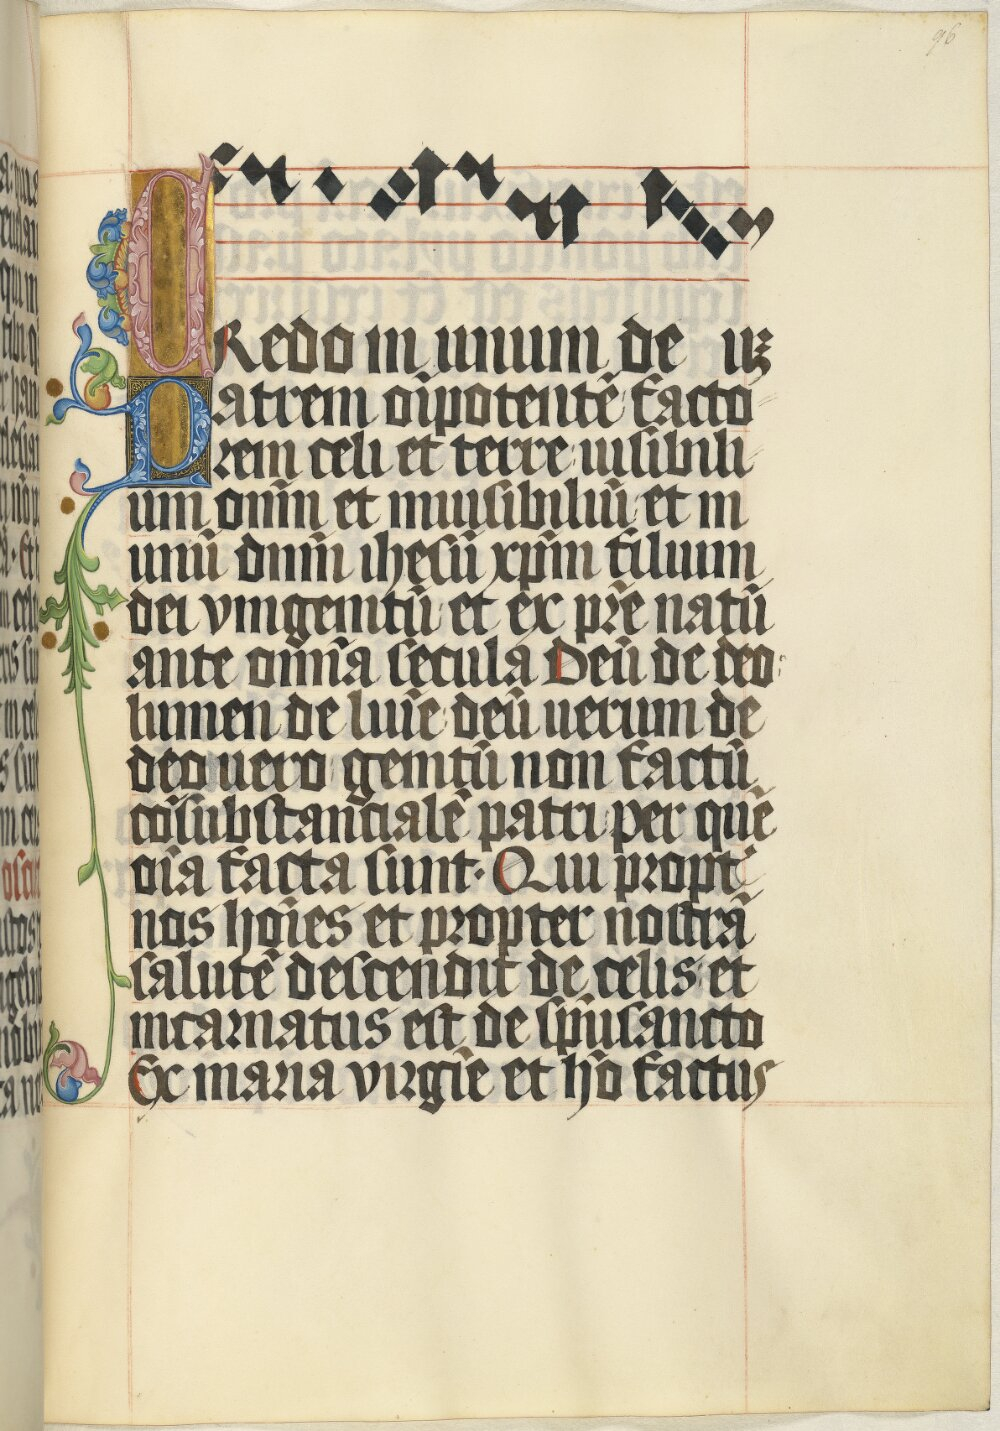 96
CRedo in unum de uꝫ
Patrem oīpotentē facto
rem celi et terre uisibili
um oīm et inuisibiliū et in
unū dnm̄ ihesū xpm̄ filium
dei vnigenitū et ex pr̄e natū
ante omīa secula Deū de deo
lumen de luīe deū uerum de
deo uero genitū non factū
cōsubstancialē patri per quē
oīa facta sunt· Qui propt̄
nos hoīes et propter nostrā
salutē descendit de celis et
incarnatus est de spūsancto
Ex maria virgīe et hō factus